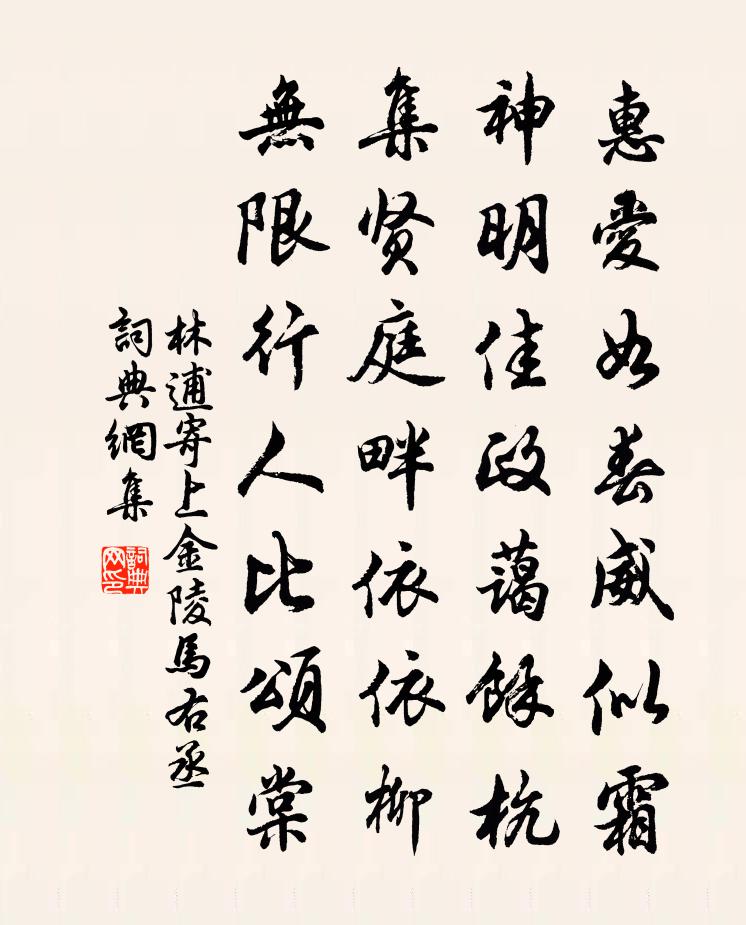 惠愛如春威似霜
神明佳政藹餘杭
集贤庭畔依依柳
無限行人比頌棠
林逋寄上金陵馬右丞
詞典網集
詞典网印